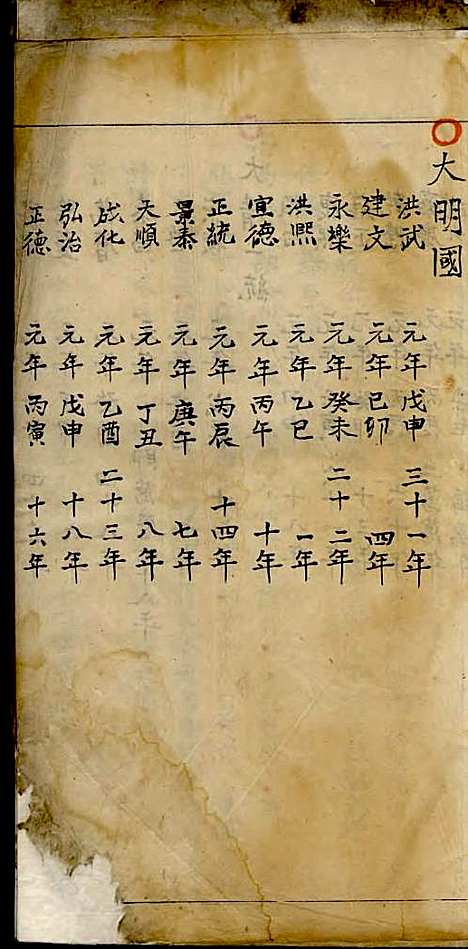 大明國
洪武 元年戊申 三十一年
建文 元年己卯 四年
永樂 元年癸未 二十二年
洪熙 元年乙巳 一年
宣德 元年丙午 十年
正統 元年丙辰 十四年
景泰 元年庚午 七年
天順 元年丁丑 八年
成化 元年乙酉 二十三年
弘治 元年戊申 十八年
正德 元年丙寅 十六年